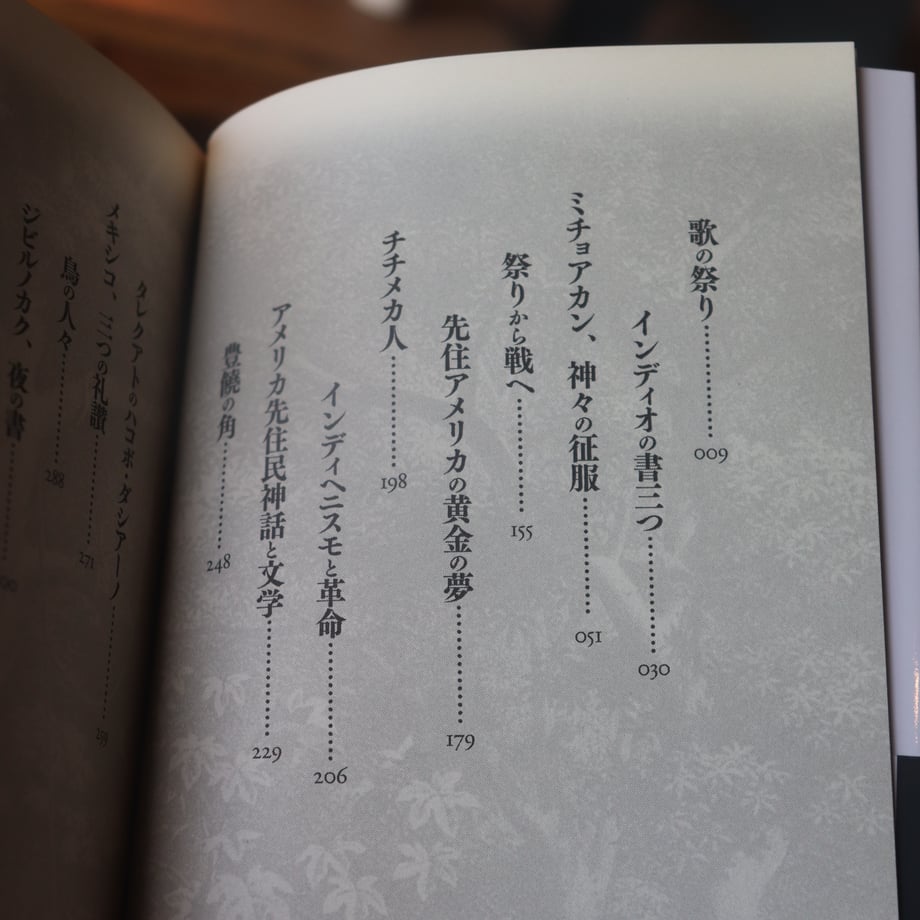 歌の祭り…………009
インディオの書三つ…………030
ミチョアカン、神々の征服…………051
祭りから戦へ…………155
先住アメリカの黄金の夢…………179
チチメカ人…………198
インディヘニスモと革命…………206
アメリカ先住民神話と文学…………229
豊饒の角…………248
タレクアトのハコボ・ダシアーノ…………259
メキシコ、三つの礼讃…………271
鳥の人々…………288
ジビルノカク、夜の書…………